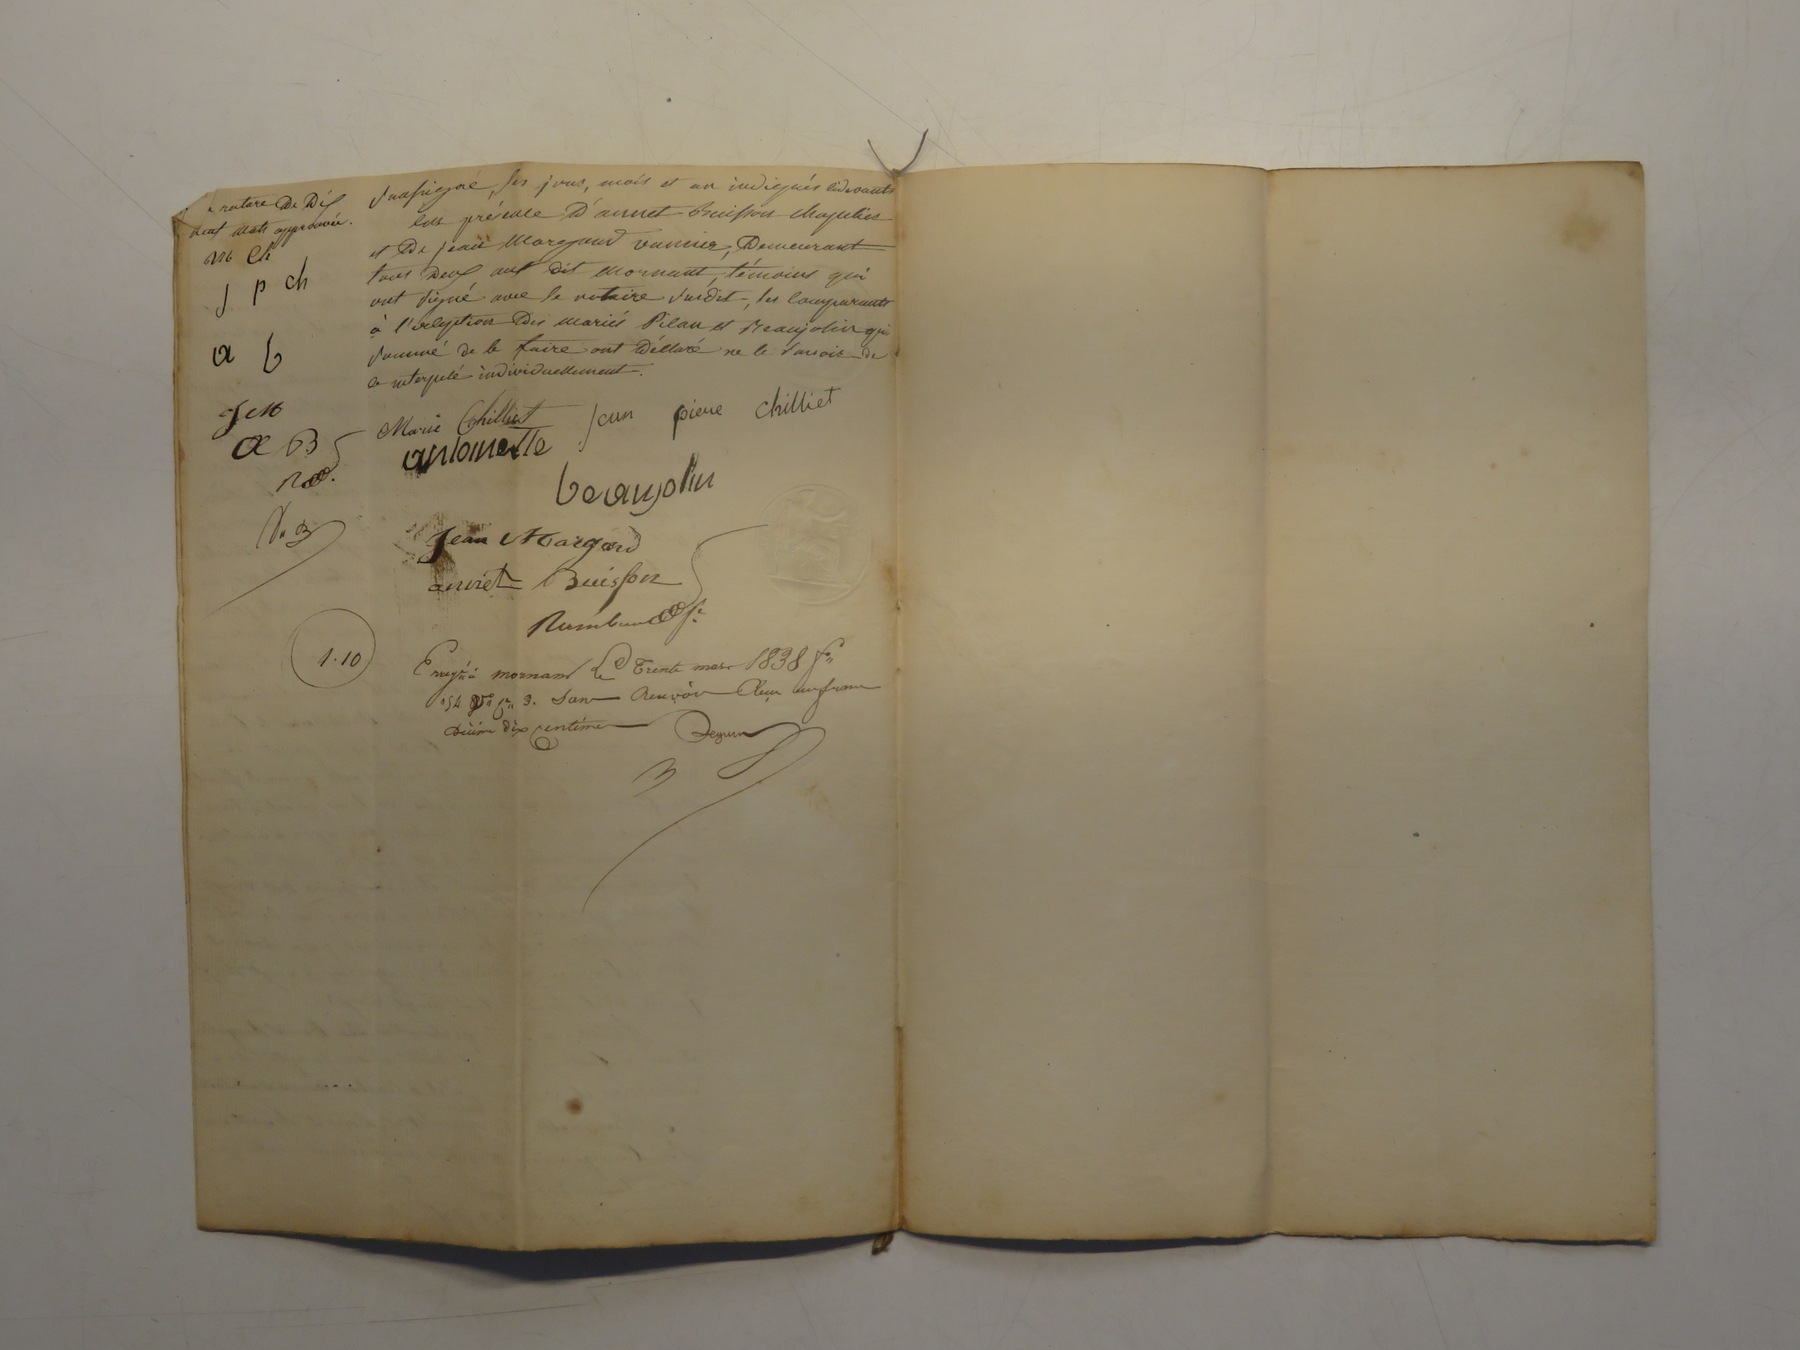 rature De Dix
neuf mots approuvée.
m ch
j p ch
a b
J M
a B
R
D B
1.10
soussigné, les jour, mois et an indiqués cidevants
En présence D'annet Buisson chapelier
et De jean Margand vannier, Demeurant
tous Deux aud dit Mornant, témoins qui
ont signé avec le notaire susdit, les comparants
à l'exception Des mariés Pilan et Beaujolin qui
sommé de le faire ont Déclaré ne le savoir de
ce interpelé individuellement.
Marie Chilliet Jean pierre chilliet
antoinette
beaujolin
Jean Margand
annet Buisson
Enregtré à mornant Le Trente mars 1838 fo
154 Vo Ce 3. San Renvoi Reçu un franc
Décime dix centimes